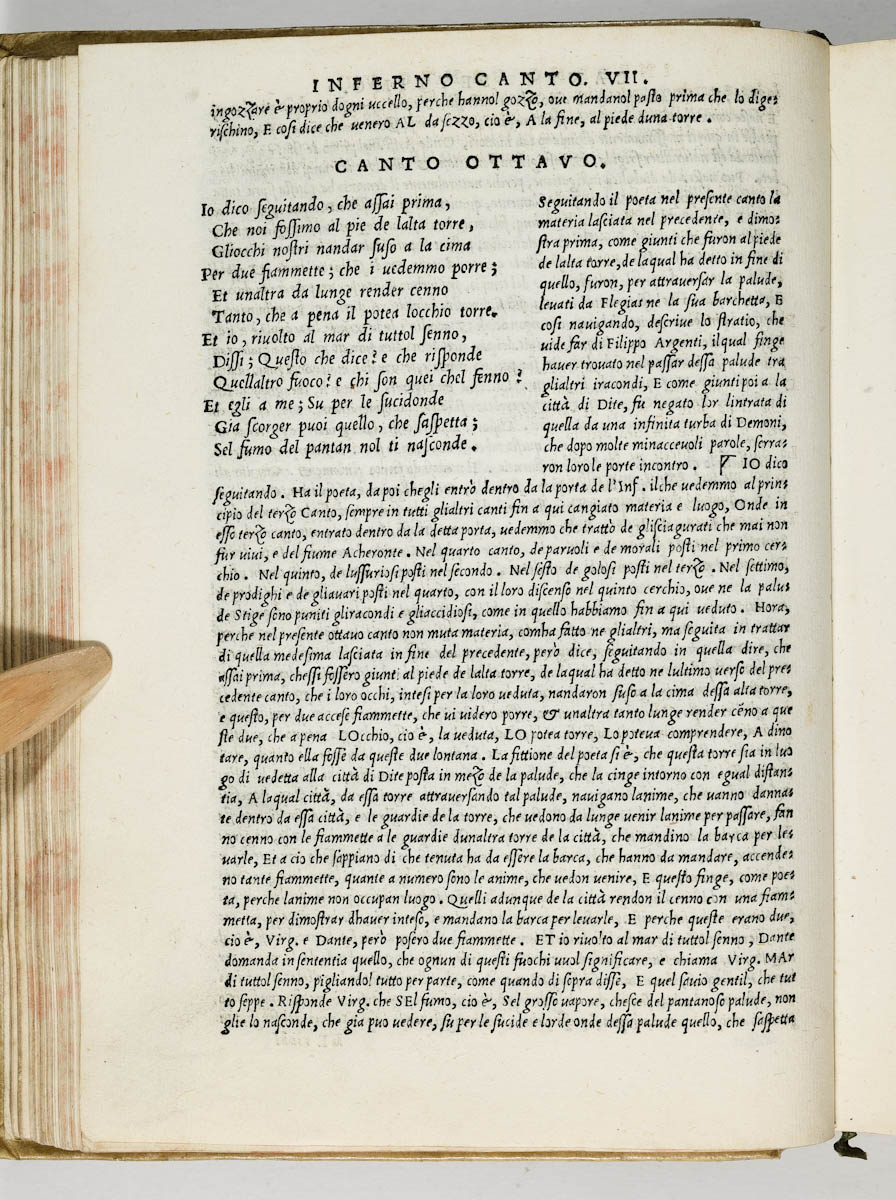 INFERNO CANTO. VII.
ingozzare è proprio dogni uccello, perche hannol gozzo, oue mandanol pasto prima che lo dige-
rischino, E cosi dice che uenero AL da sezzo, cio è, A la fine, al piede duna torre.
CANTO OTTAVO.
Io dico seguitando, che assai prima,
Che noi fossimo al pie de lalta torre,
Gliocchi nostri nandar suso a la cima
Per due fiammette; che i uedemmo porre;
Et unaltra da lunge render cenno
Tanto, che a pena il potea locchio torre.
Et io, riuolto al mar di tuttol senno,
Dissi; Questo che dice? e che risponde
Quellaltro fuoco? e chi son quei chel fenno?
Et egli a me; Su per le sucidonde
Gia scorger puoi quello, che saspetta;
Sel fumo del pantan nol ti nasconde.
Seguitando il poeta nel presente canto la
materia lasciata nel precedente, e dimo-
stra prima, come giunti che furon al piede
de lalta torre, de laqual ha detto in fine di
quello, furon, per attrauersar la palude,
leuati da Flegias ne la sua barchetta, E
cosi nauigando, descriue lo stratio, che
uide far di Filippo Argenti, ilqual finge
hauer trouato nel passar dessa palude tra
glialtri iracondi, E come giunti poi a la
città di Dite, fu negato lor lintrata di
quella da una infinita turba di Demoni,
che dopo molte minacceuoli parole, serra-
ron loro le porte incontro. IO dico
seguitando. Ha il poeta, da poi chegli entrò dentro da la porta de l'Inf. ilche uedemmo al prin-
cipio del terzo Canto, sempre in tutti glialtri canti fin a qui cangiato materia e luogo, Onde in
esso terzo canto, entrato dentro da la detta porta, uedemmo che trattò de gli sciagurati che mai non
fur uiui, e del fiume Acheronte. Nel quarto canto, de paruoli e de morali posti nel primo cer-
chio. Nel quinto, de lussuriosi posti nel secondo. Nel sesto de golosi posti nel terzo. Nel settimo,
de prodighi e de gliauari posti nel quarto, con il loro discenso nel quinto cerchio, oue ne la palu-
de Stige sono puniti gliracondi e gliaccidiosi, come in quello habbiamo fin a qui ueduto. Hora,
perche nel presente ottauo canto non muta materia, comha fatto ne glialtri, ma seguita in trattar
di quella medesima lasciata in fine del precedente, però dice, seguitando in quella dire, che
assai prima, chessi fossero giunti al piede de lalta torre, de laqual ha detto ne lultimo uerso del pre-
cedente canto, che i loro occhi, intesi per la loro ueduta, nandaron suso a la cima dessa alta torre,
e questo, per due accese fiammette, che ui uidero porre, & unaltra tanto lunge render cẽno a que
ste due, che a pena LOcchio, cio è, la ueduta, LO potea torre, Lo poteua comprendere, A dino
tare, quanto ella fosse da queste due lontana. La fittione del poeta si è, che questa torre sia in luo
go di uedetta alla città di Dite posta in mezo de la palude, che la cinge intorno con egual distan-
tia, A laqual città, da essa torre attrauersando tal palude, nauigano lanime, che uanno danna-
te dentro da essa città, e le guardie de la torre, che uedono da lunge uenir lanime per passare, fan
no cenno con le fiammette a le guardie dunaltra torre de la città, che mandino la barca per le-
uarle, Et a cio che sappiano di che tenuta ha da essere la barca, che hanno da mandare, accende-
no tante fiammette, quante a numero sono le anime, che uedon uenire, E questo finge, come poe-
ta, perche lanime non occupan luogo. Quelli adunque de la città rendon il cenno con una fiam-
metta, per dimostrar dhauer inteso, e mandano la barca per leuarle, E perche queste erano due,
cio è, Virg. e Dante, però posero due fiammette. ET io riuolto al mar di tuttol senno, Dante
domanda in sententia quello, che ognun di questi fuochi uuol significare, e chiama Virg. MAr
di tuttol senno, pigliandol tutto per parte, come quando di sopra disse, E quel sauio gentil, che tut
to seppe. Risponde Virg. che SEl fumo, cio è, Sel grosso uapore, chesce del pantanoso palude, non
glie lo nasconde, che gia puo uedere, su per le sucide e lorde onde dessa palude quello, che saspetta